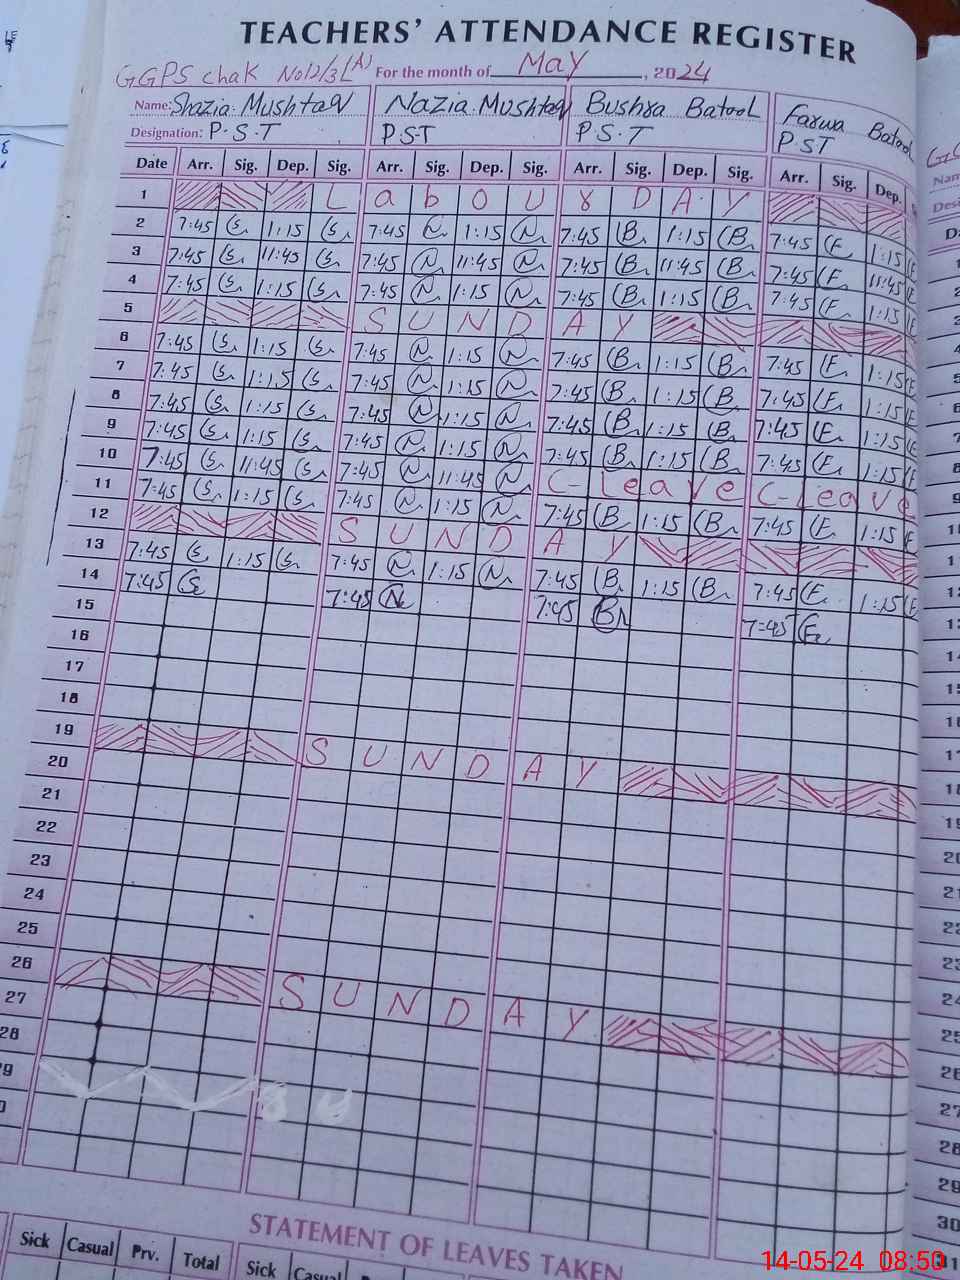 TEACHERS' ATTENDANCE REGISTER
GGPS chak No12/3L(A) For the month of May, 2024
Name: Shazia Mushtaq Nazia Mushtaq Bushra Batool Farwa Batool
Designation: P.S.T P.S.T P.S.T P.ST
Date Arr. Sig. Dep. Sig. Arr. Sig. Dep. Sig. Arr. Sig. Dep. Sig. Arr. Sig. Dep.
1 LaboUr DAY
2 7:45 S 1:15 S 7:45 N 1:15 N 7:45 B 1:15 B 7:45 F 1:15
3 7:45 S 11:45 S 7:45 N 11:45 N 7:45 B 11:45 B 7:45 F 11:45
4 7:45 S 1:15 S 7:45 N 1:15 N 7:45 B 1:15 B 7:45 F 1:15
5 SUNDAY
6 7:45 S 1:15 S 7:45 N 1:15 N 7:45 B 1:15 B 7:45 F 1:15
7 7:45 S 1:15 S 7:45 N 1:15 N 7:45 B 1:15 B 7:45 F 1:15
8 7:45 S 1:15 S 7:45 N 1:15 N 7:45 B 1:15 B 7:45 F 1:15
9 7:45 S 1:15 S 7:45 N 1:15 N 7:45 B 1:15 B 7:45 F 1:15
10 7:45 S 11:45 S 7:45 N 11:45 N C-leave C-leave
11 7:45 S 1:15 S 7:45 N 1:15 N 7:45 B 1:15 B 7:45 F 1:15
12 SUNDAY
13 7:45 S 1:15 S 7:45 N 1:15 N 7:45 B 1:15 B 7:45 F 1:15
14 7:45 S 7:45 N 7:45 B 7:45 F
15
16
17
18
19 SUNDAY
20
21
22
23
24
25
26 SUNDAY
27
28
29
STATEMENT OF LEAVES TAKEN
Sick Casual Prv. Total Sick Casual
14-05-24 08:50